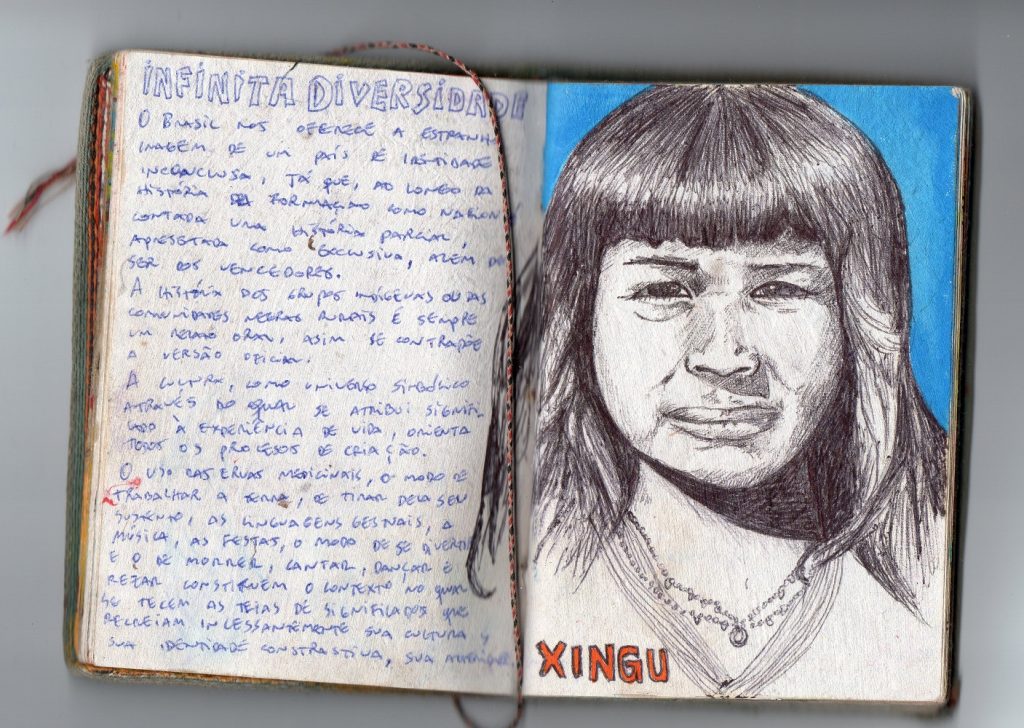 INFINITA DIVERSIDADE
O BRASIL NOS OFERECE A ESTRANH
IMAGEM DE UM PAÍS E IDENTIDADE
INCONCLUSA, JÁ QUE, AO LONGO DA
HISTÓRIA DA FORMAÇÃO COMO NACION
CONTADA UMA HISTÓRIA PARCIAL,
APRESETADA COMO EXCLUSIVA, ALÉM DE
SER DOS VENCEDORES.
A HISTÓRIA DOS GRUPOS INDÍGENAS OU DAS
COMUNIDADES NEGRAS RURAIS É SEMPRE
UM RELATO ORAL, ASIM SE CONTRAPÕE
A VERSÃO OFICIAL.
A CULTURA, COMO UNIVERSO SIMBÓLICO
ATRAVÉS DO QUAL SE ATRIBUI SIGNIFI
CADO À EXPERIÊNCIA DE VIDA, ORIENTA
TODOS OS PROCESOS DE CRIAÇÃO.
O USO DAS ERVAS MEDICINAIS, O MODO DE
TRABALHAR A TERRA, DE TIRAR DELA SEU
SUSTENTO, AS LINGUAGENS GESTUAIS, A
MÚSICA, AS FESTAS, O MODO DE SE DIVERTIR
E O DE MORRER, CANTAR, DANÇAR E
REZAR CONSTITUEM O CONTEXTO NO QUAL
SE TECEM AS TEIAS DE SIGNIFICADOS QUE
RECREIAM INCESSANTEMENTE SUA CULTURA Y
SUA IDENTIDADE CONSTRASTIVA, SUA
XINGU